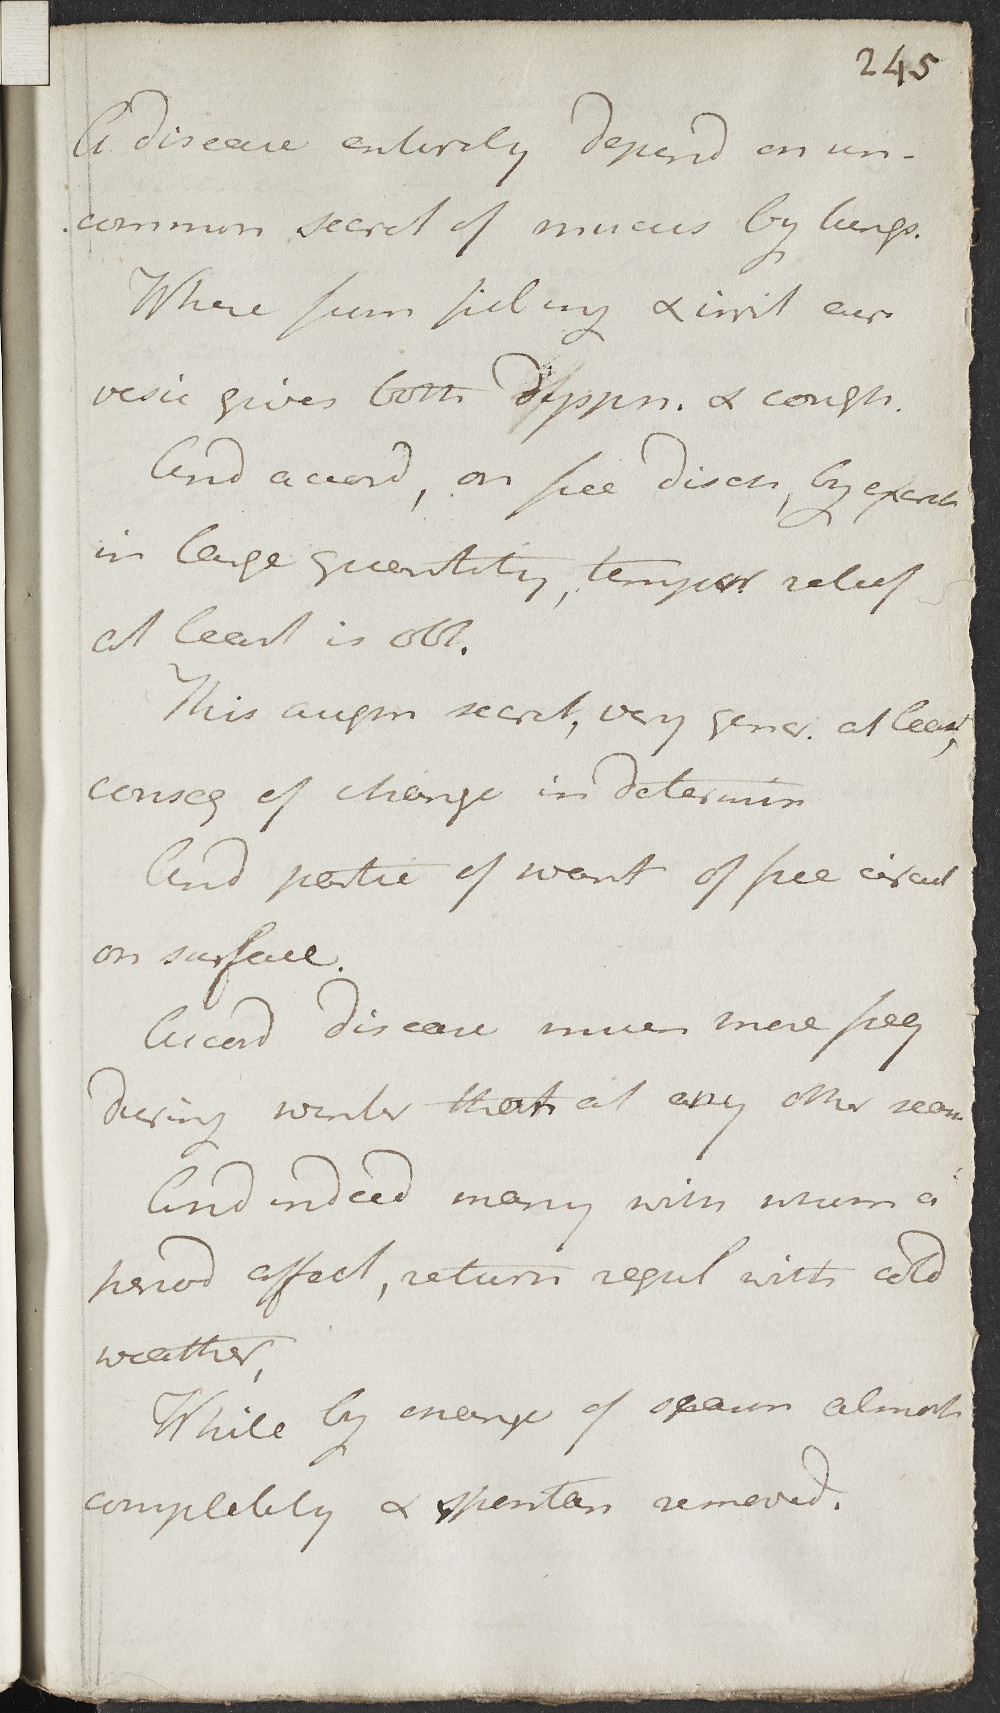 245
A disease entirely depend on un-
common secret of mucus by lungs.
Where from fill up & irrit air
vesic gives both dyspn. & cough.
And accord, on free disch, by expect
in large quantity, tempor relief
at least is obt.
This augm secret, very gener. at least,
conseq of change in determin
And partic of want of free circul
on surface.
Accord disease much more freq
during winter that at any other seas
And indeed many with whom a
period affect, return regul with cold
weather,
While by change of season almost
completely & spontan removed.